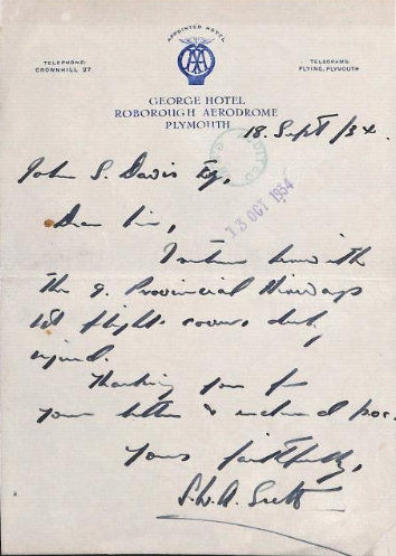 APPOINTED HOTEL
AA
TELEPHONE:
CROWNHILL 27
TELEGRAMS:
FLYING, PLYMOUTH
GEORGE HOTEL
ROBOROUGH AERODROME
PLYMOUTH
18. Sept /34.
John S. Davis Esq,
Dear Sir,
13 OCT 1934
I return herewith
the 9. Provincial Airways
1st flight covers duly
signed.
Thanking you for
your letter & enclosed
Yours faithfully,